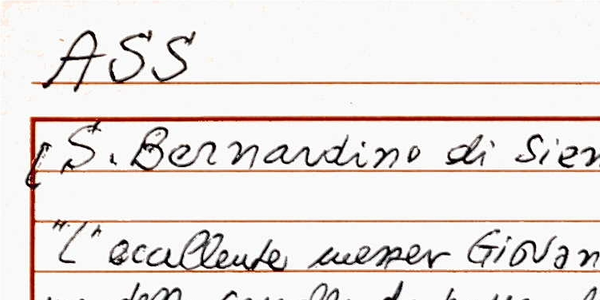 ASS
[S. Bernardino di Sien
"l" eccellente messer Giovan